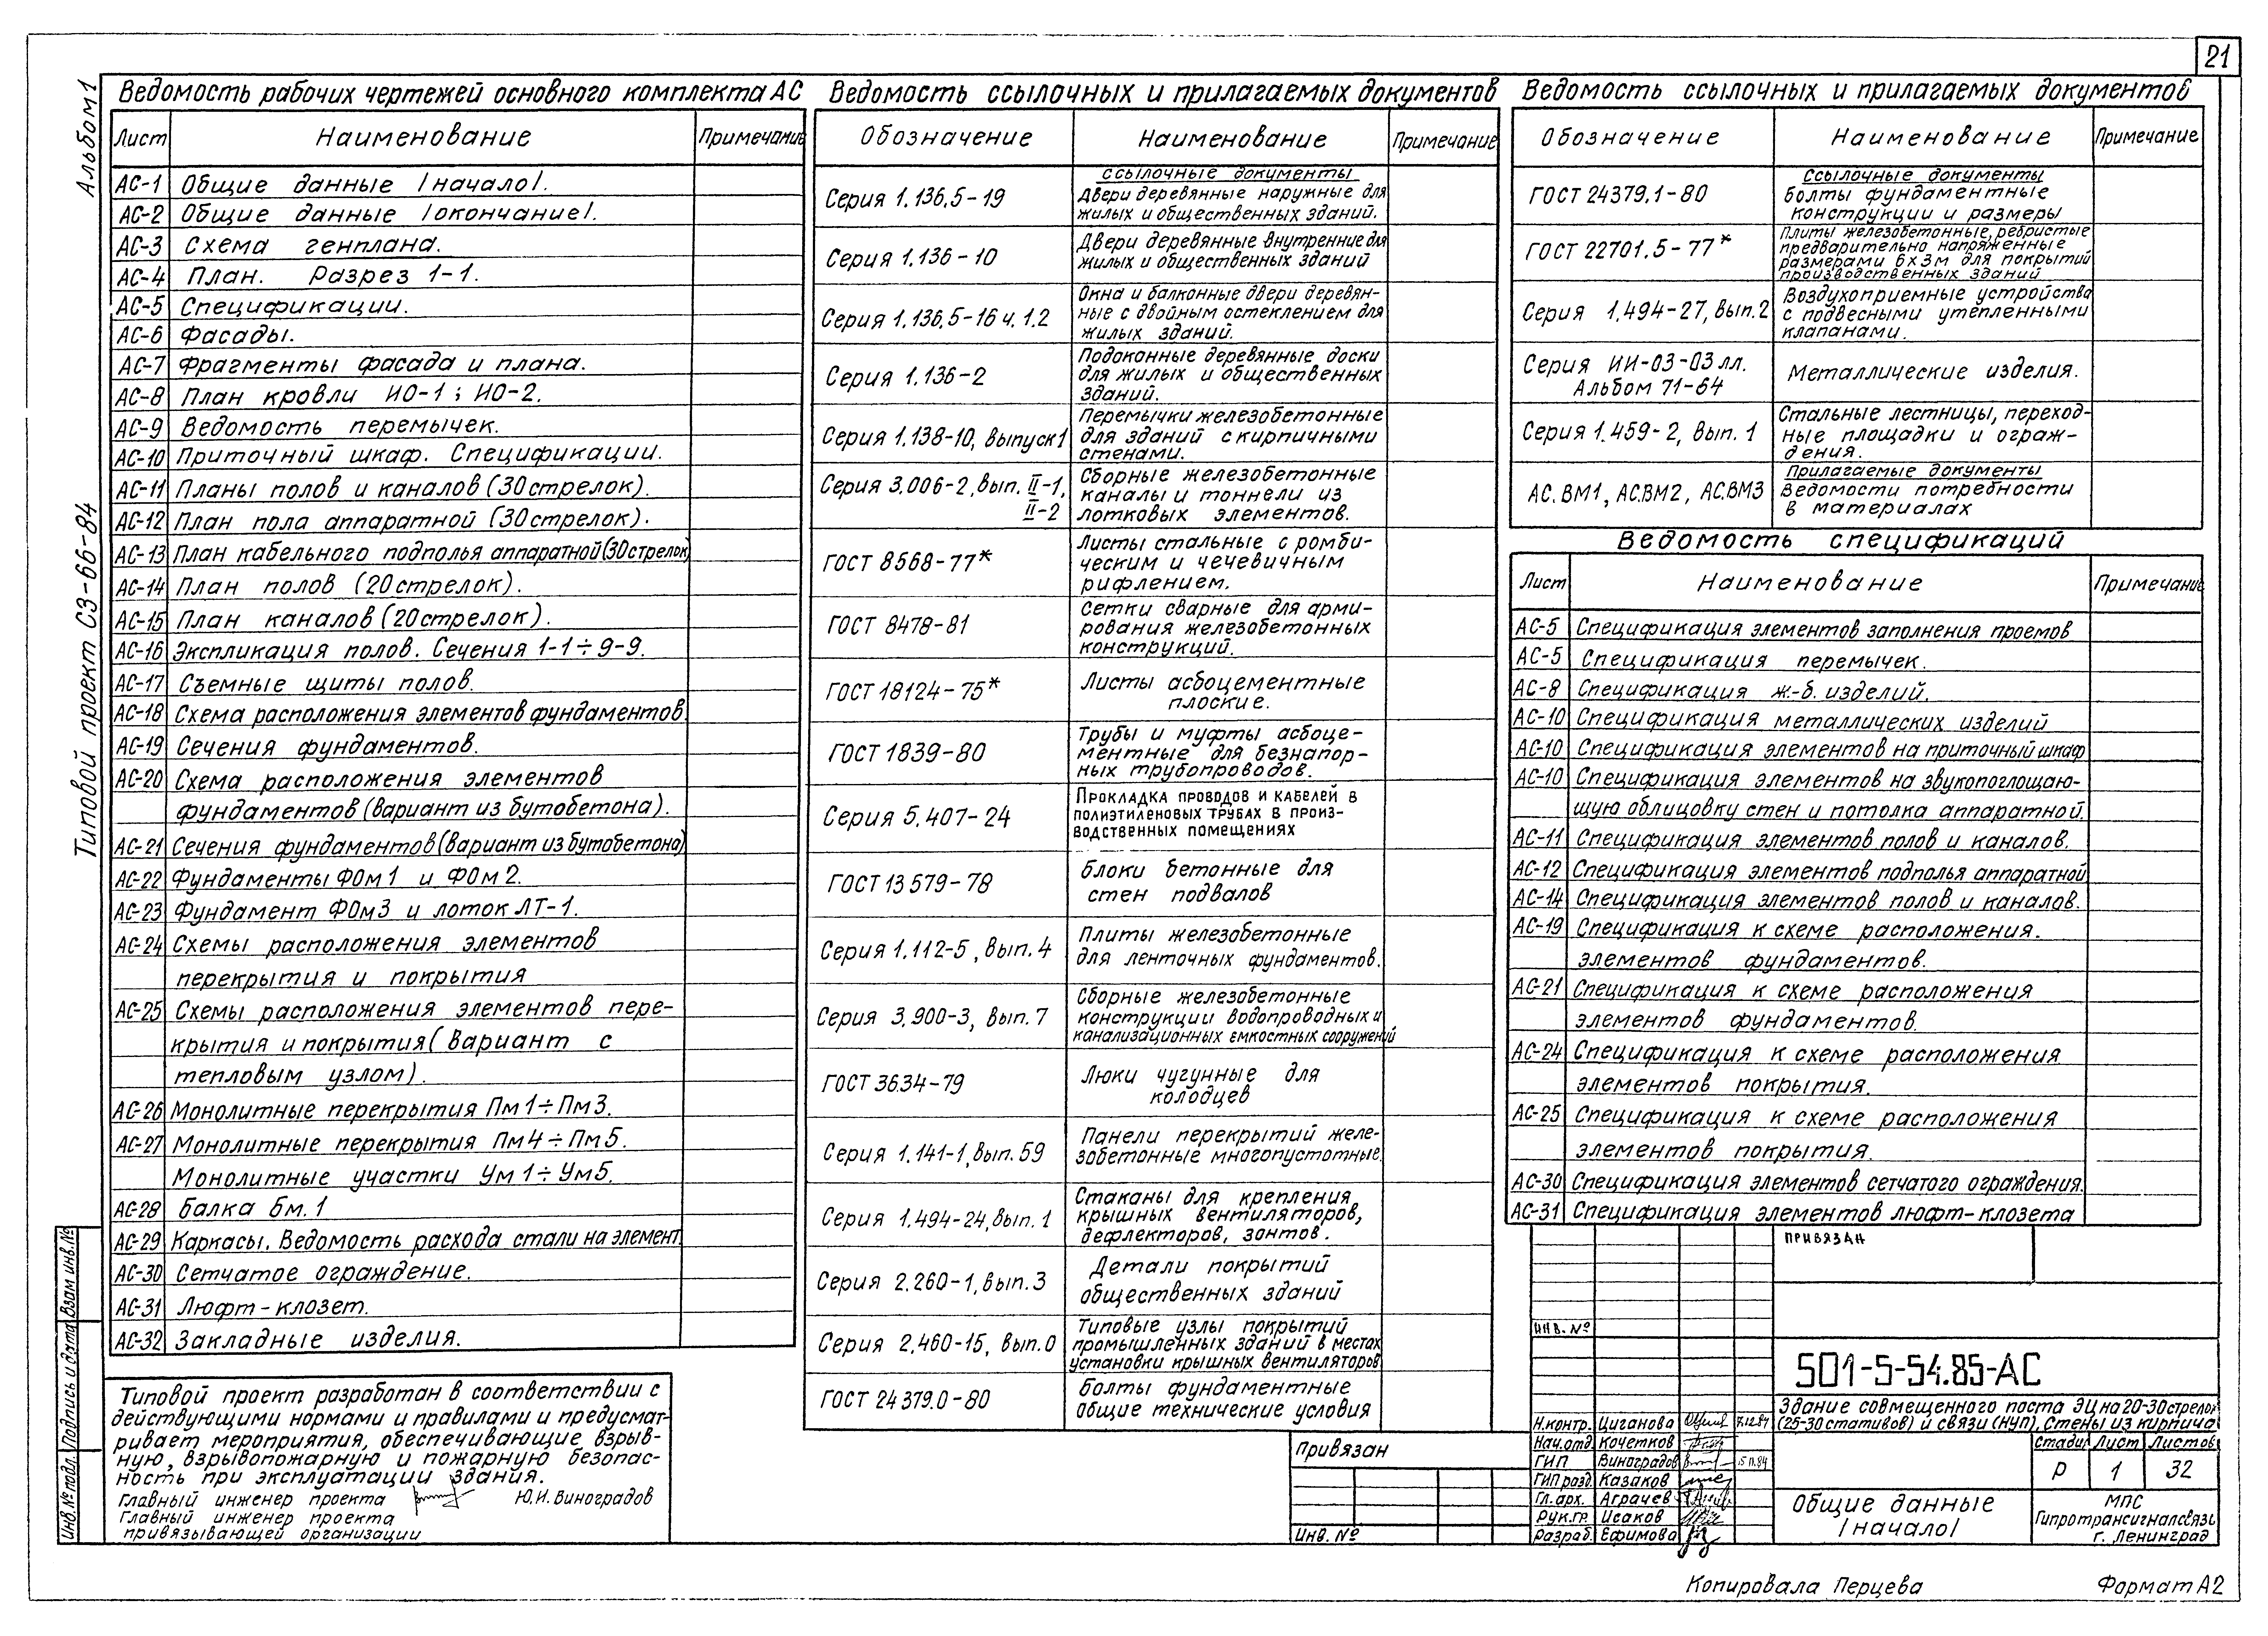 21
Альбом 1
Типовой проект СЗ-66-84
Ведомость рабочих чертежей основного комплекта АС
Лист Наименование Примечание
АС-1 Общие данные /начало/.
АС-2 Общие данные /окончание/.
АС-3 Схема генплана.
АС-4 План. Разрез 1-1.
АС-5 Спецификации.
АС-6 Фасады.
АС-7 Фрагменты фасада и плана.
АС-8 План кровли ИО-1; ИО-2.
АС-9 Ведомость перемычек.
АС-10 Приточный шкаф. Спецификации.
АС-11 Планы полов и каналов (30 стрелок).
АС-12 План пола аппаратной (30 стрелок).
АС-13 План кабельного подполья аппаратной (30 стрелок)
АС-14 План полов (20 стрелок).
АС-15 План каналов (20 стрелок).
АС-16 Экспликация полов. Сечения 1-1÷9-9.
АС-17 Съемные щиты полов.
АС-18 Схема расположения элементов фундаментов.
АС-19 Сечения фундаментов.
АС-20 Схема расположения элементов
фундаментов (вариант из бутобетона).
АС-21 Сечения фундаментов (вариант из бутобетона)
АС-22 Фундаменты ФОм1 и ФОм2.
АС-23 Фундамент ФОм3 и лоток ЛТ-1.
АС-24 Схемы расположения элементов
перекрытия и покрытия
АС-25 Схемы расположения элементов пере-
крытия и покрытия (вариант с
тепловым узлом).
АС-26 Монолитные перекрытия Пм1÷Пм3.
АС-27 Монолитные перекрытия Пм4÷Пм5.
Монолитные участки Ум1÷Ум5.
АС-28 Балка Бм.1
АС-29 Каркасы. Ведомость расхода стали на элемент.
АС-30 Сетчатое ограждение.
АС-31 Люфт-клозет.
АС-32 Закладные изделия.
Типовой проект разработан в соответствии с
действующими нормами и правилами и предусмат-
ривает мероприятия, обеспечивающие взрыв-
ную, взрывопожарную и пожарную безопас-
ность при эксплуатации здания.
Главный инженер проекта Ю.И. Виноградов
Главный инженер проекта
привязывающей организации
Ведомость ссылочных и прилагаемых документов
Обозначение Наименование Примечание
Ссылочные документы
Серия 1.136.5-19 Двери деревянные наружные для
жилых и общественных зданий.
Серия 1.136-10 Двери деревянные внутренние для
жилых и общественных зданий
Серия 1.136.5-16 ч. 1.2 Окна и балконные двери деревян-
ные с двойным остеклением для
жилых зданий.
Серия 1.136-2 Подоконные деревянные доски
для жилых и общественных
зданий.
Серия 1.138-10, выпуск 1 Перемычки железобетонные
для зданий с кирпичными
стенами.
Серия 3.006-2, вып. II-1, II-2 Сборные железобетонные
каналы и тоннели из
лотковых элементов.
ГОСТ 8568-77* Листы стальные с ромби-
ческим и чечевичным
рифлением.
ГОСТ 8478-81 Сетки сварные для арми-
рования железобетонных
конструкций.
ГОСТ 18124-75* Листы асбоцементные
плоские.
ГОСТ 1839-80 Трубы и муфты асбоце-
ментные для безнапор-
ных трубопроводов.
Серия 5.407-24 Прокладка проводов и кабелей в
полиэтиленовых трубах в произ-
водственных помещениях
ГОСТ 13579-78 Блоки бетонные для
стен подвалов
Серия 1.112-5, вып. 4 Плиты железобетонные
для ленточных фундаментов.
Серия 3.900-3, вып. 7 Сборные железобетонные
конструкции водопроводных и
канализационных емкостных сооружений
ГОСТ 3634-79 Люки чугунные для
колодцев
Серия 1.141-1, вып. 59 Панели перекрытий желе-
зобетонные многопустотные.
Серия 1.494-24, вып. 1 Стаканы для крепления
крышных вентиляторов,
дефлекторов, зонтов.
Серия 2.260-1, вып. 3 Детали покрытий
общественных зданий
Серия 2.460-15, вып. 0 Типовые узлы покрытий
промышленных зданий в местах
установки крышных вентиляторов
ГОСТ 24379.0-80 Болты фундаментные
общие технические условия
Ведомость ссылочных и прилагаемых документов
Обозначение Наименование Примечание
Ссылочные документы
ГОСТ 24379.1-80 болты фундаментные
конструкции и размеры
ГОСТ 22701.5-77* Плиты железобетонные, ребристые
предварительно напряженные
размерами 6х3м для покрытий
производственных зданий
Серия 1.494-27, вып. 2 Воздухоприемные устройства
с подвесными утепленными
клапанами.
Серия ИИ-03-03 лл.
Альбом 71-64 Металлические изделия.
Серия 1.459-2, вып. 1 Стальные лестницы, переход-
ные площадки и ограж-
дения.
Прилагаемые документы
АС.ВМ1, АС.ВМ2, АС.ВМ3 Ведомости потребности
в материалах
Ведомость спецификаций
Лист Наименование Примечание
АС-5 Спецификация элементов заполнения проемов
АС-5 Спецификация перемычек.
АС-8 Спецификация ж-б. изделий.
АС-10 Спецификация металлических изделий
АС-10 Спецификация элементов на приточный шкаф
АС-10 Спецификация элементов на звукопоглощаю-
щую облицовку стен и потолка аппаратной.
АС-11 Спецификация элементов полов и каналов.
АС-12 Спецификация элементов подполья аппаратной
АС-14 Спецификация элементов полов и каналов.
АС-19 Спецификация к схеме расположения.
элементов фундаментов.
АС-21 Спецификация к схеме расположения
элементов фундаментов.
АС-24 Спецификация к схеме расположения
элементов покрытия.
АС-25 Спецификация к схеме расположения
элементов покрытия.
АС-30 Спецификация элементов сетчатого ограждения.
АС-31 Спецификация элементов люфт-клозета
Привязан
Инв. №
501-5-54.85-АС
Здание совмещенного поста ЭЦ на 20-30 стрелок
(25-30 стативов) и связи (НУП). Стены из кирпича
Н.контр. Циганова
Нач.отд. Кочетков
ГИП Виноградов 15.11.84
ГИП разд. Казаков
Гл.арх. Аграчев
Рук.гр. Исаков
Разраб. Ефимова
Стадия Лист Листов
Р 1 32
Общие данные
/начало/
МПС
Гипротрансигналсвязь
г. Ленинград
Привязан
Инв. №
Взам инв. №
Подпись и дата
Инв. № подл.
Копировала Перцева
Формат А2